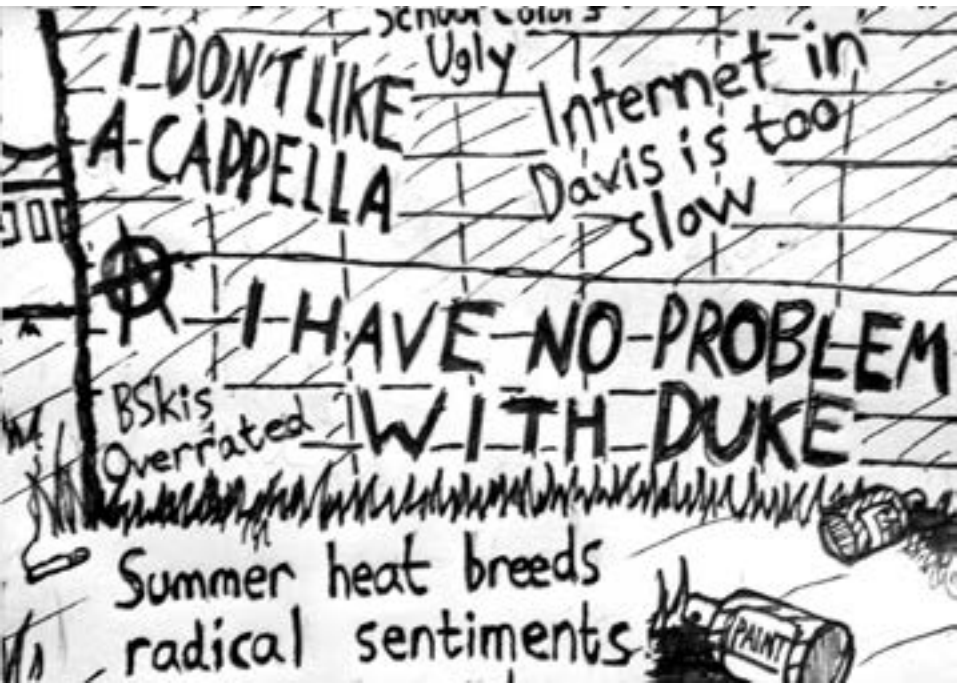 School Colors
Ugly
I DON'T LIKE
A CAPPELLA
Internet in
Davis is too
slow
I HAVE NO PROBLEM
WITH DUKE
BSkis
Overrated
Summer heat breeds
radical sentiments
PAINT